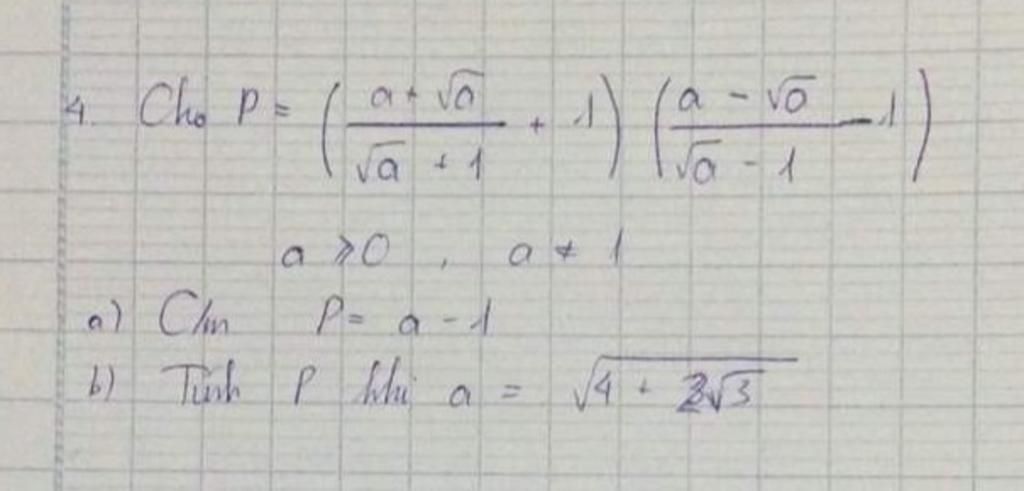 4. Cho P = ( (a + √a)/(√a + 1) + 1 ) ( (a - √a)/(√a - 1) - 1 )
a ⩾ 0 , a ≠ 1
a) C/m P = a - 1
b) Tính P khi a = √(4 + 2√3)